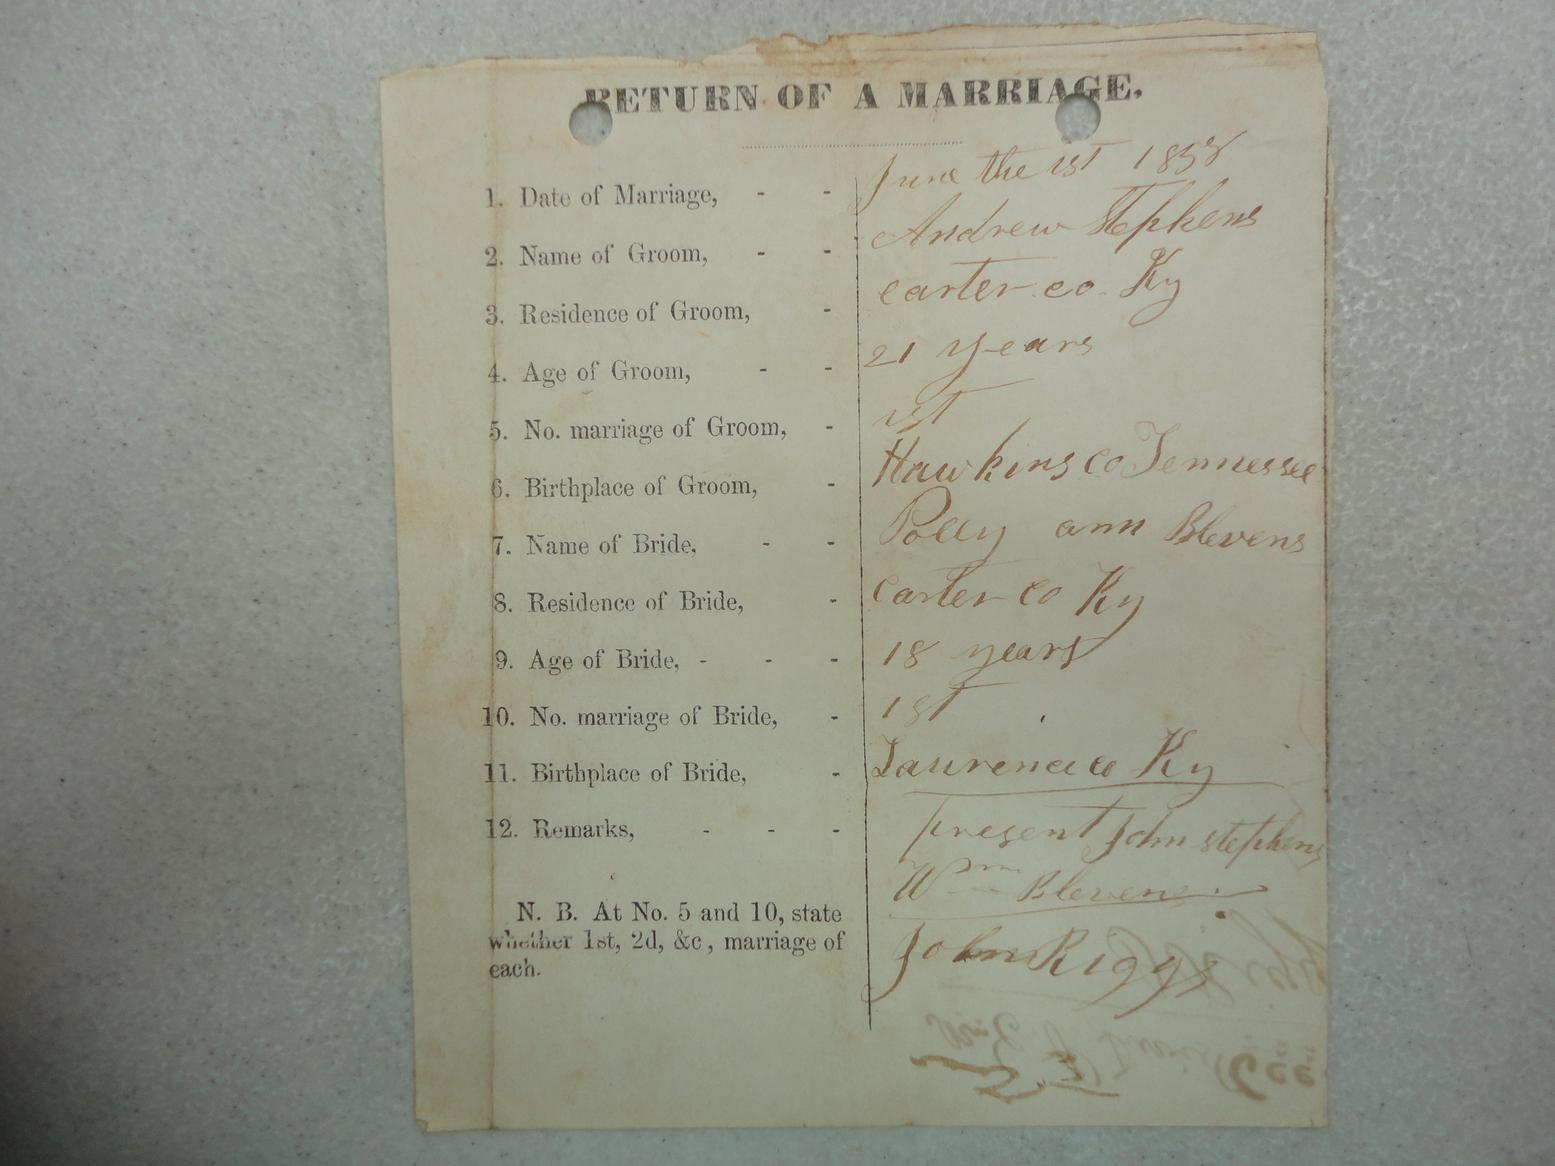 RETURN OF A MARRIAGE.
1. Date of Marriage, - - June the 1st 1858
2. Name of Groom, - - Andrew Stephens
3. Residence of Groom, - carter co. Ky
4. Age of Groom, - - 21 years
5. No. marriage of Groom, - 1st
6. Birthplace of Groom, - Hawkins co Tennessee
7. Name of Bride, - - Polly ann Blevens
8. Residence of Bride, - Carter Co Ky
9. Age of Bride, - - - 18 years
10. No. marriage of Bride, - 1st
11. Birthplace of Bride, - Laurence co Ky
12. Remarks, - - - present John stephens
Wm Blevens
N. B. At No. 5 and 10, state
whether 1st, 2d, &c, marriage of
each.
John Riggs